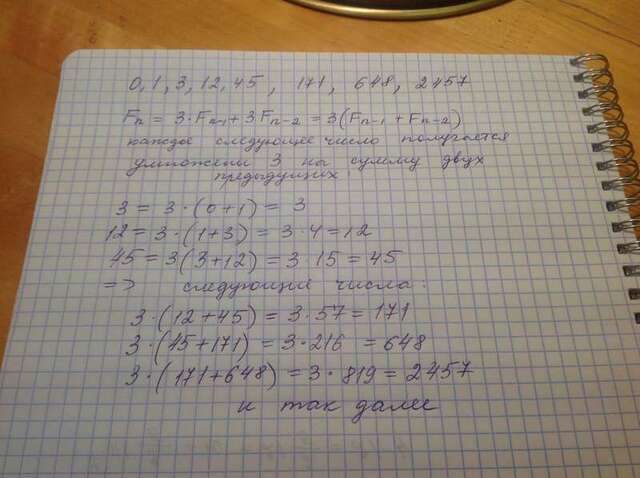 0, 1, 3, 12, 45, 171, 648, 2457
Fn = 3·Fn-1 + 3·Fn-2 = 3(Fn-1 + Fn-2)
каждое следующее число получается
умножением 3 на сумму двух
предыдущих
3 = 3·(0+1) = 3
12 = 3·(1+3) = 3·4 = 12
45 = 3(3+12) = 3·15 = 45
=> следующие числа:
3·(12+45) = 3·57 = 171
3·(45+171) = 3·216 = 648
3·(171+648) = 3·819 = 2457
и так далее